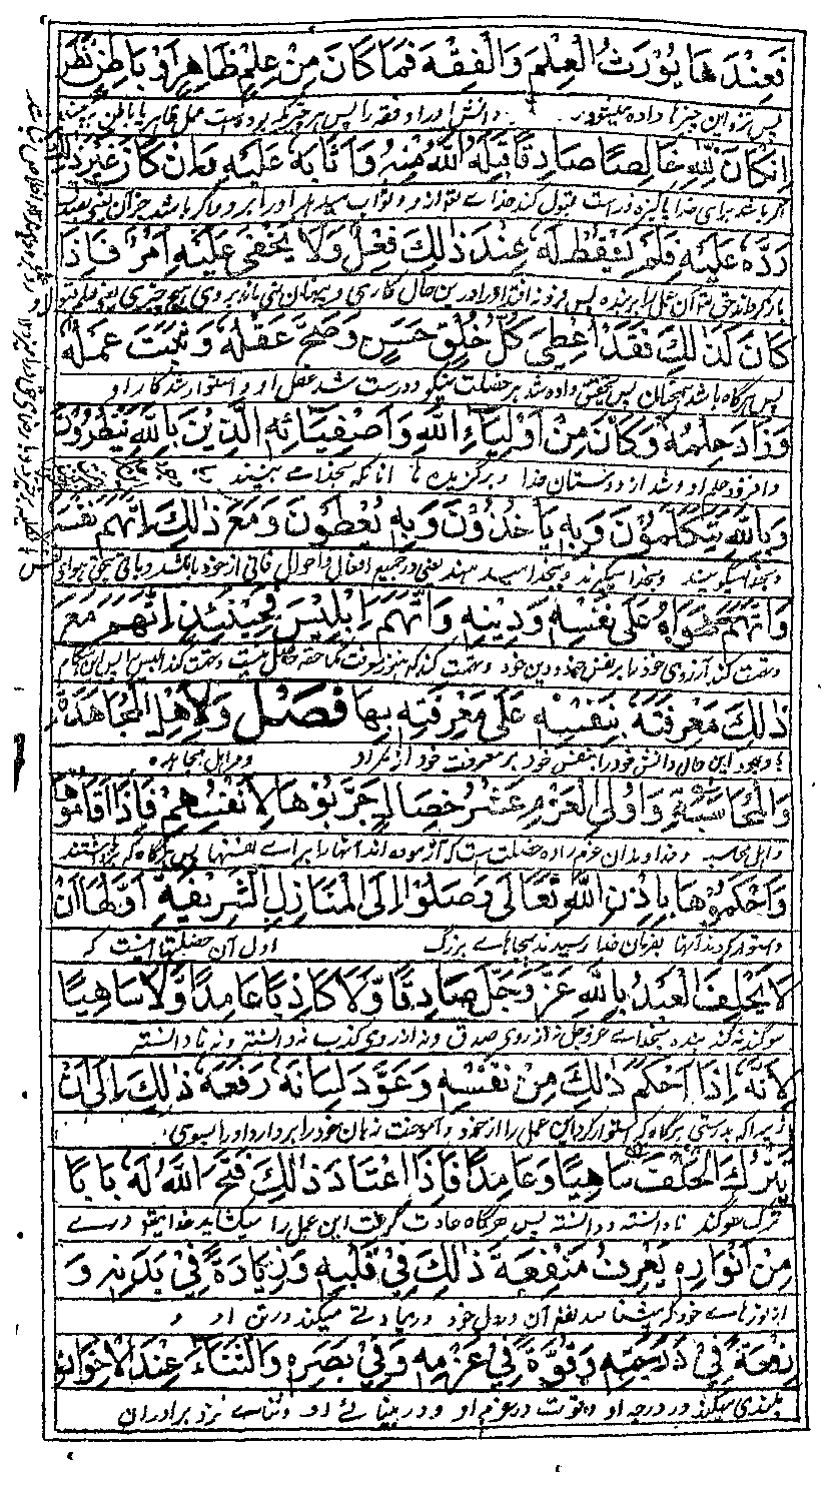 فَعِنْدَهَا يُوْرَثُ الْعِلْمَ وَالْفِقْهَ فَمَا كَانَ مِنْ عِلْمٍ ظَاهِرٍ اَوْ بَاطِنٍ نَظَرَ
پس نزد این چیزها داده میشود دانش اورا و فقه را پس هر چیزیکه بوده است عمل ظاهر یا باطن
اِنْ كَانَ لِلّٰهِ خَالِصًا صَادِقًا قَبِلَهُ اللّٰهُ مِنْهُ وَاَثَابَهُ عَلَيْهِ وَاِنْ كَانَ غَيْرَ ذٰلِكَ
اگر باشد برای خدا پاکیزه و راست قبول کند خداے تعالی از و و ثواب میدهد او را برو و اگر باشد جز آن
رَدَّهُ عَلَيْهِ فَلَمْ يَسْقُطْ لَهُ عِنْدَ ذٰلِكَ فِعْلٌ وَلَا يَخْفٰى عَلَيْهِ اَمْرٌ فَاِذَا
باز گرداند حق تعالی آن عمل را بر بنده پس فرو نه افتد اورا درین حال کاری و پنهان نمی ماند بروی هیچ چیزی
كَانَ كَذٰلِكَ فَقَدْ اُعْطِيَ كُلَّ خُلُقٍ حَسَنٍ وَصَحَّ عَقْلُهُ وَثَبَتَ عَمَلُهُ
پس هرگاه باشد همچنان پس تحقیق داده شد هر خصلت نیکو و درست شد عقل او و استوار شد کار او
وَزَادَ حِلْمُهُ وَكَانَ مِنْ اَوْلِيَآءِ اللّٰهِ وَاَصْفِيَائِهِ الَّذِيْنَ بِاللّٰهِ يَنْظُرُوْنَ
و افزود حلم او و شد از دوستان خدا و برگزیده ها آنانکه بخداے بینند
وَبِاللّٰهِ يَتَكَلَّمُوْنَ وَبِهِ يَاْخُذُوْنَ وَبِهِ يُعْطُوْنَ وَمَعَ ذٰلِكَ اِتَّهَمَ نَفْسَهُ
و بخدا میگویند و بخدا میگیرند و بخدا میدهند یعنی در جمیع افعال و احوال فانی از خود باشند و باقی بحق
وَاتَّهَمَ هَوَاهُ عَلٰى نَفْسِهِ وَدِيْنِهِ وَاتَّهَمَ اِبْلِيْسَ فَحِيْنَئِذٍ اِتَّهَمَ مَعَ
و تهمت کند آرزوی خود را بر نفس خود و دین خود و تهمت کند ابلیس را پس این هنگام
ذٰلِكَ مَعْرِفَتَهُ بِنَفْسِهِ عَلٰى مَعْرِفَتِهِ بِهَا فَصْلٌ وَلِاَهْلِ الْمُجَاهَدَةِ
با وجود این حال دانش خود را بنفس خود بر معرفت خود و مر اهل مجاهده
وَالْمُحَاسَبَةِ وَاُولِي الْعَزْمِ عَشْرُ خِصَالٍ جَرَّبُوْهَا لِاَنْفُسِهِمْ فَاِذَا اَقَامُوْهَا
و اهل محاسبه و خداوندان عزم را ده خصلت ست که آزموده اند آنها را براے نفسها پس هرگاه که
وَاَحْكَمُوْهَا بِاِذْنِ اللّٰهِ تَعَالٰى وَصَلُوْا اِلَى الْمَنَازِلِ الشَّرِيْفَةِ اَوَّلُهَا اَنْ
و استوار کردند آنها بفرمان خدا رسیدند بجاهاے بزرگ اول آن خصلتها اینست که
لَا يَحْلِفَ الْعَبْدُ بِاللّٰهِ عَزَّ وَجَلَّ صَادِقًا وَّلَا كَاذِبًا عَامِدًا وَّلَا سَاهِيًا
سوگند نه کند بنده بخداے عز و جل نه از روی صدق و نه از روی کذب نه دانسته و نه نادانسته
لِاَنَّهُ اِذَا اَحْكَمَ ذٰلِكَ مِنْ نَفْسِهِ وَعَوَّدَ لِسَانَهُ رَفَعَهُ ذٰلِكَ اِلٰى اَنْ
زیراکه بدرستی هرگاه که استوار کرد این عمل را از خود و آموخت زبان خود را بردارد او را بسوی
يَتْرُكَ الْحَلْفَ سَاهِيًا وَعَامِدًا فَاِذَا اعْتَادَ ذٰلِكَ فَتَحَ اللّٰهُ لَهُ بَابًا
ترک سوگند نادانسته و دانسته پس هرگاه عادت گرفت این عمل را میکشاید خدایتعالی درے
مِنْ اَنْوَارِهِ يَعْرِفُ مَنْفَعَةَ ذٰلِكَ فِيْ قَلْبِهِ وَزِيَادَةً فِيْ بَدَنِهِ وَ
از نورهاے خود که میشناسد نفع آن در دل خود و زیادتے میکند در تن او و
رِفْعَةً فِيْ دَرَجَتِهِ وَقُوَّةً فِيْ عَزْمِهِ وَفِيْ بَصَرِهِ وَالثَّنَاءَ عِنْدَ الْاِخْوَانِ
بلندی میکند در درجه او و قوت در عزم او و در بینائے او و ثناے نزد برادران